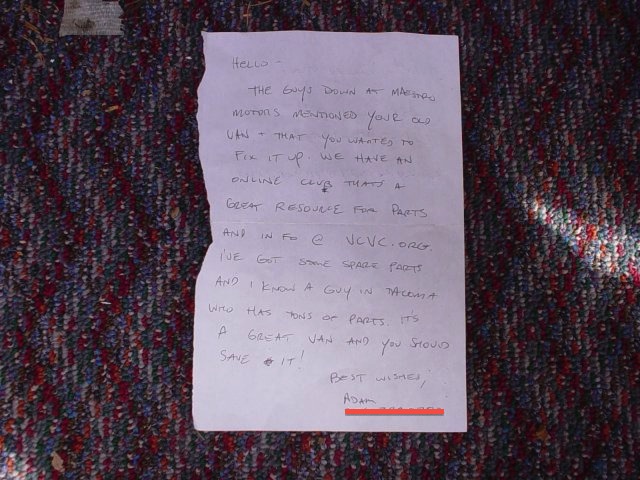 HELLO -
THE GUYS DOWN AT MAESTRO
MOTORS MENTIONED YOUR OLD
VAN + THAT YOU WANTED TO
FIX IT UP. WE HAVE AN
ONLINE CLUB THAT'S A
GREAT RESOURCE FOR PARTS
AND INFO @ VCVC.ORG.
I'VE GOT SOME SPARE PARTS
AND I KNOW A GUY IN TACOMA
WHO HAS TONS OF PARTS. IT'S
A GREAT VAN AND YOU SHOULD
SAVE IT!
BEST WISHES,
ADAM